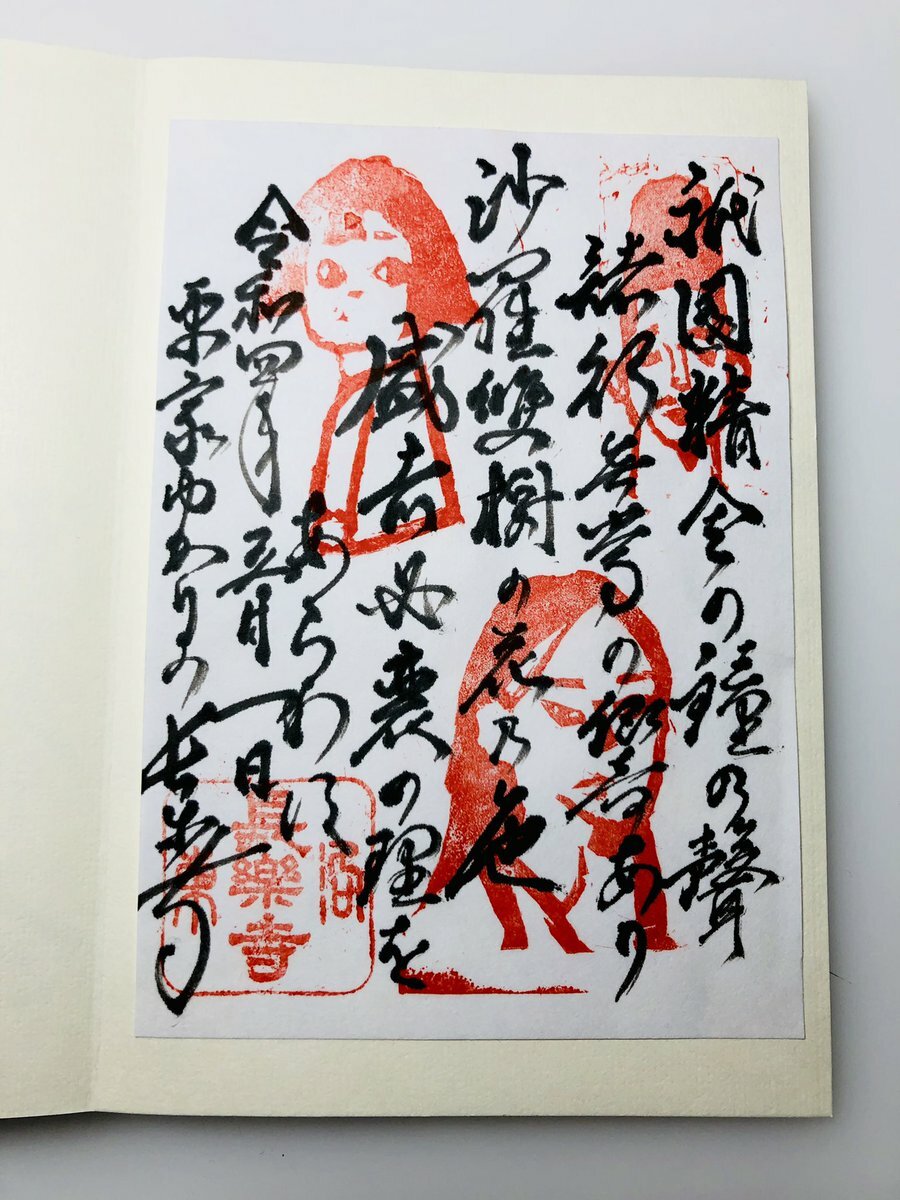 祇園精舎の鐘乃聲
諸行無常の響あり
沙羅雙樹の花乃色
盛者必衰の理を
あらわす
令和四年五月一日
平家ゆかりの長楽寺
洛
長樂寺
東